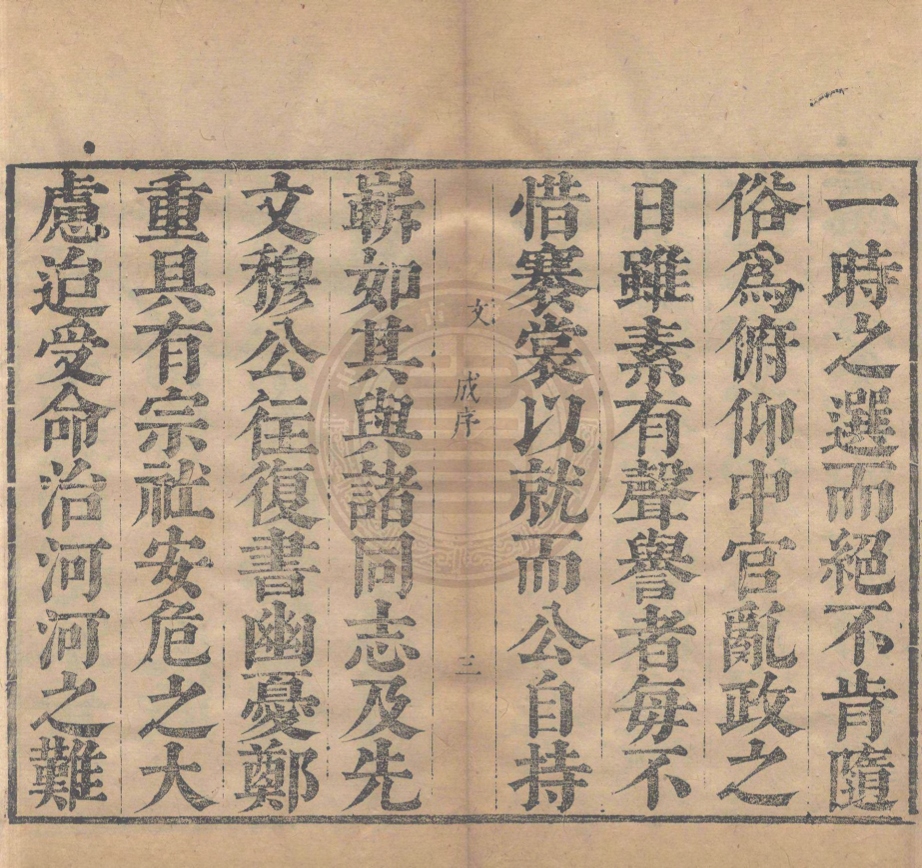 一時之選而絕不肯隨
俗爲俯仰中官亂政之
日雖素有聲譽者每不
惜褰裳以就而公自持
文 成序 三
嶄如其與諸同志及先
文穆公往復書幽憂鄭
重具有宗社安危之大
慮迨受命治河河之難